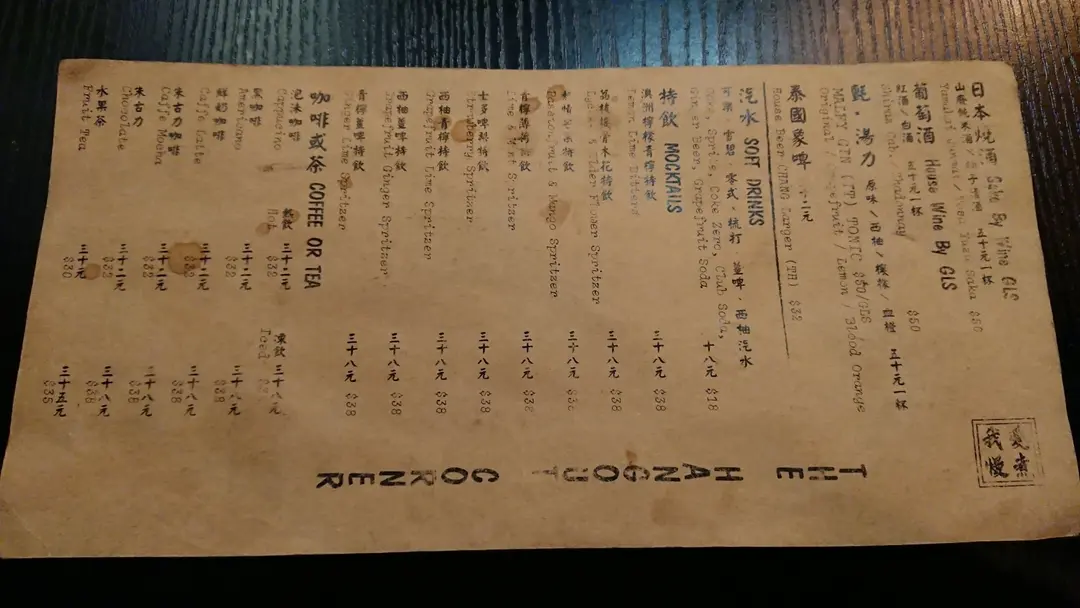 日本燒酒 Sake By Wine GLS
五十元一杯
$50
葡萄酒 House Wine By GLS
紅酒/白酒 五十元一杯
$50
氈·湯力 原味/西柚/檸檬/血橙 五十元一杯
MALFY GIN (IT) TONIC $50/GLS
Original / Grapefruit / Lemon / Blood Orange
泰國象啤
House Beer CHANG Larger (TH) $32
汽水 SOFT DRINKS
可樂,雪碧,零式,梳打,薑啤,西柚汽水
Coke, Sprite, Coke Zero, Club Soda,
Ginger Beer, Grapefruit Soda 十八元 $18
特飲 MOCKTAILS
澳洲檸檬青檸特飲
Lemon Lime Bitters 三十八元 $38
荔枝接骨木花特飲
Elder Flower Spritzer 三十八元 $38
Mango Spritzer 三十八元
青檸薄荷特飲
Lime & Mint Spritzer 三十八元 $38
士多啤梨特飲
Strawberry Spritzer 三十八元 $38
西柚青檸特飲
Grapefruit Lime Spritzer 三十八元 $38
西柚薑啤特飲
Grapefruit Ginger Spritzer 三十八元 $38
青檸薑啤特飲
Ginger Lime Spritzer 三十八元 $38
咖啡或茶 COFFEE OR TEA
熱飲 Hot
凍飲 Iced
泡沫咖啡 三十二元 三十八元
Cappuccino $32
黑咖啡 三十二元 三十八元
Americano $32 $38
鮮奶咖啡 三十二元 三十八元
Caffe Latte $38
朱古力咖啡 三十二元 三十八元
Caffe Mocha $32 $38
朱古力 三十二元 三十八元
Chocolate $32 $38
水果茶 三十元 三十五元
Fruit Tea $30 $35
THE HANGOUT CORNER